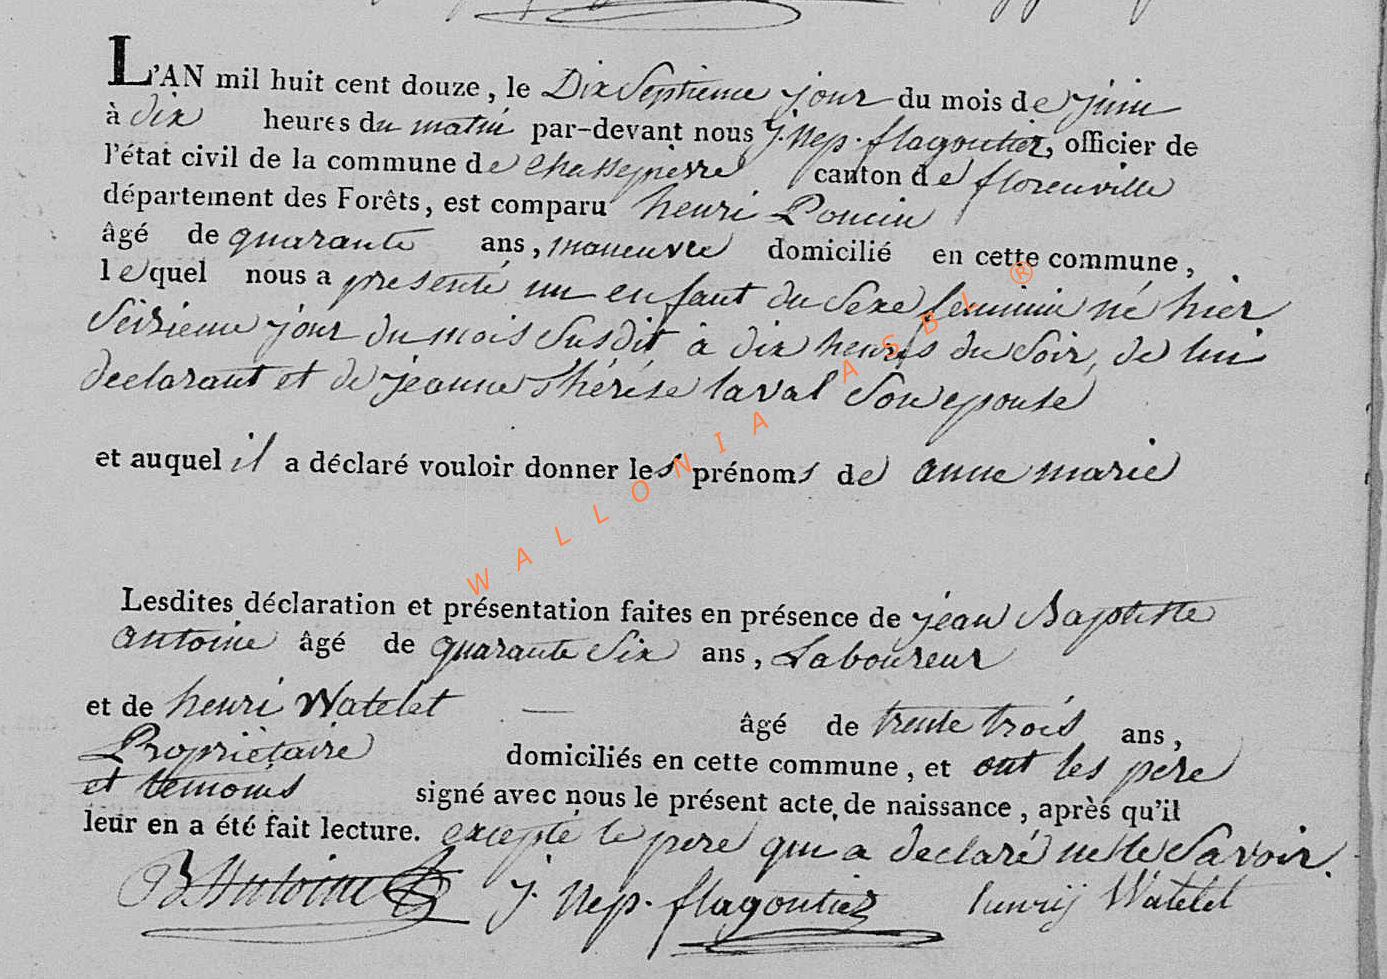 L'AN mil huit cent douze, le Dix Septieme jour du mois de juin
à dix heures du matin par-devant nous J. Nep. flagontier, officier de
l'état civil de la commune de chassepierre canton de florenville
département des Forêts, est comparu henri Poncin
âgé de quarante ans, maneuvre domicilié en cette commune,
lequel nous a presenté un enfant du Sexe feminin né hier
Seizieme jour du mois Susdit à dix heures du Soir, de lui
declarant et de jeanne Thérése laval Son epouse
et auquel il a déclaré vouloir donner les prénoms de anne marie
Lesdites déclaration et présentation faites en présence de jean Baptiste
antoine âgé de quarante Six ans, Laboureur
et de henri Watelet — âgé de trente trois ans,
Propriètaire domiciliés en cette commune, et ont les pere
et temoins signé avec nous le présent acte de naissance, après qu'il
leur en a été fait lecture. excepté le pere qui a declaré ne le Savoir.
B Antoine J. Nep. flagontier henrij Watelet
WALLONIA ASBL ®